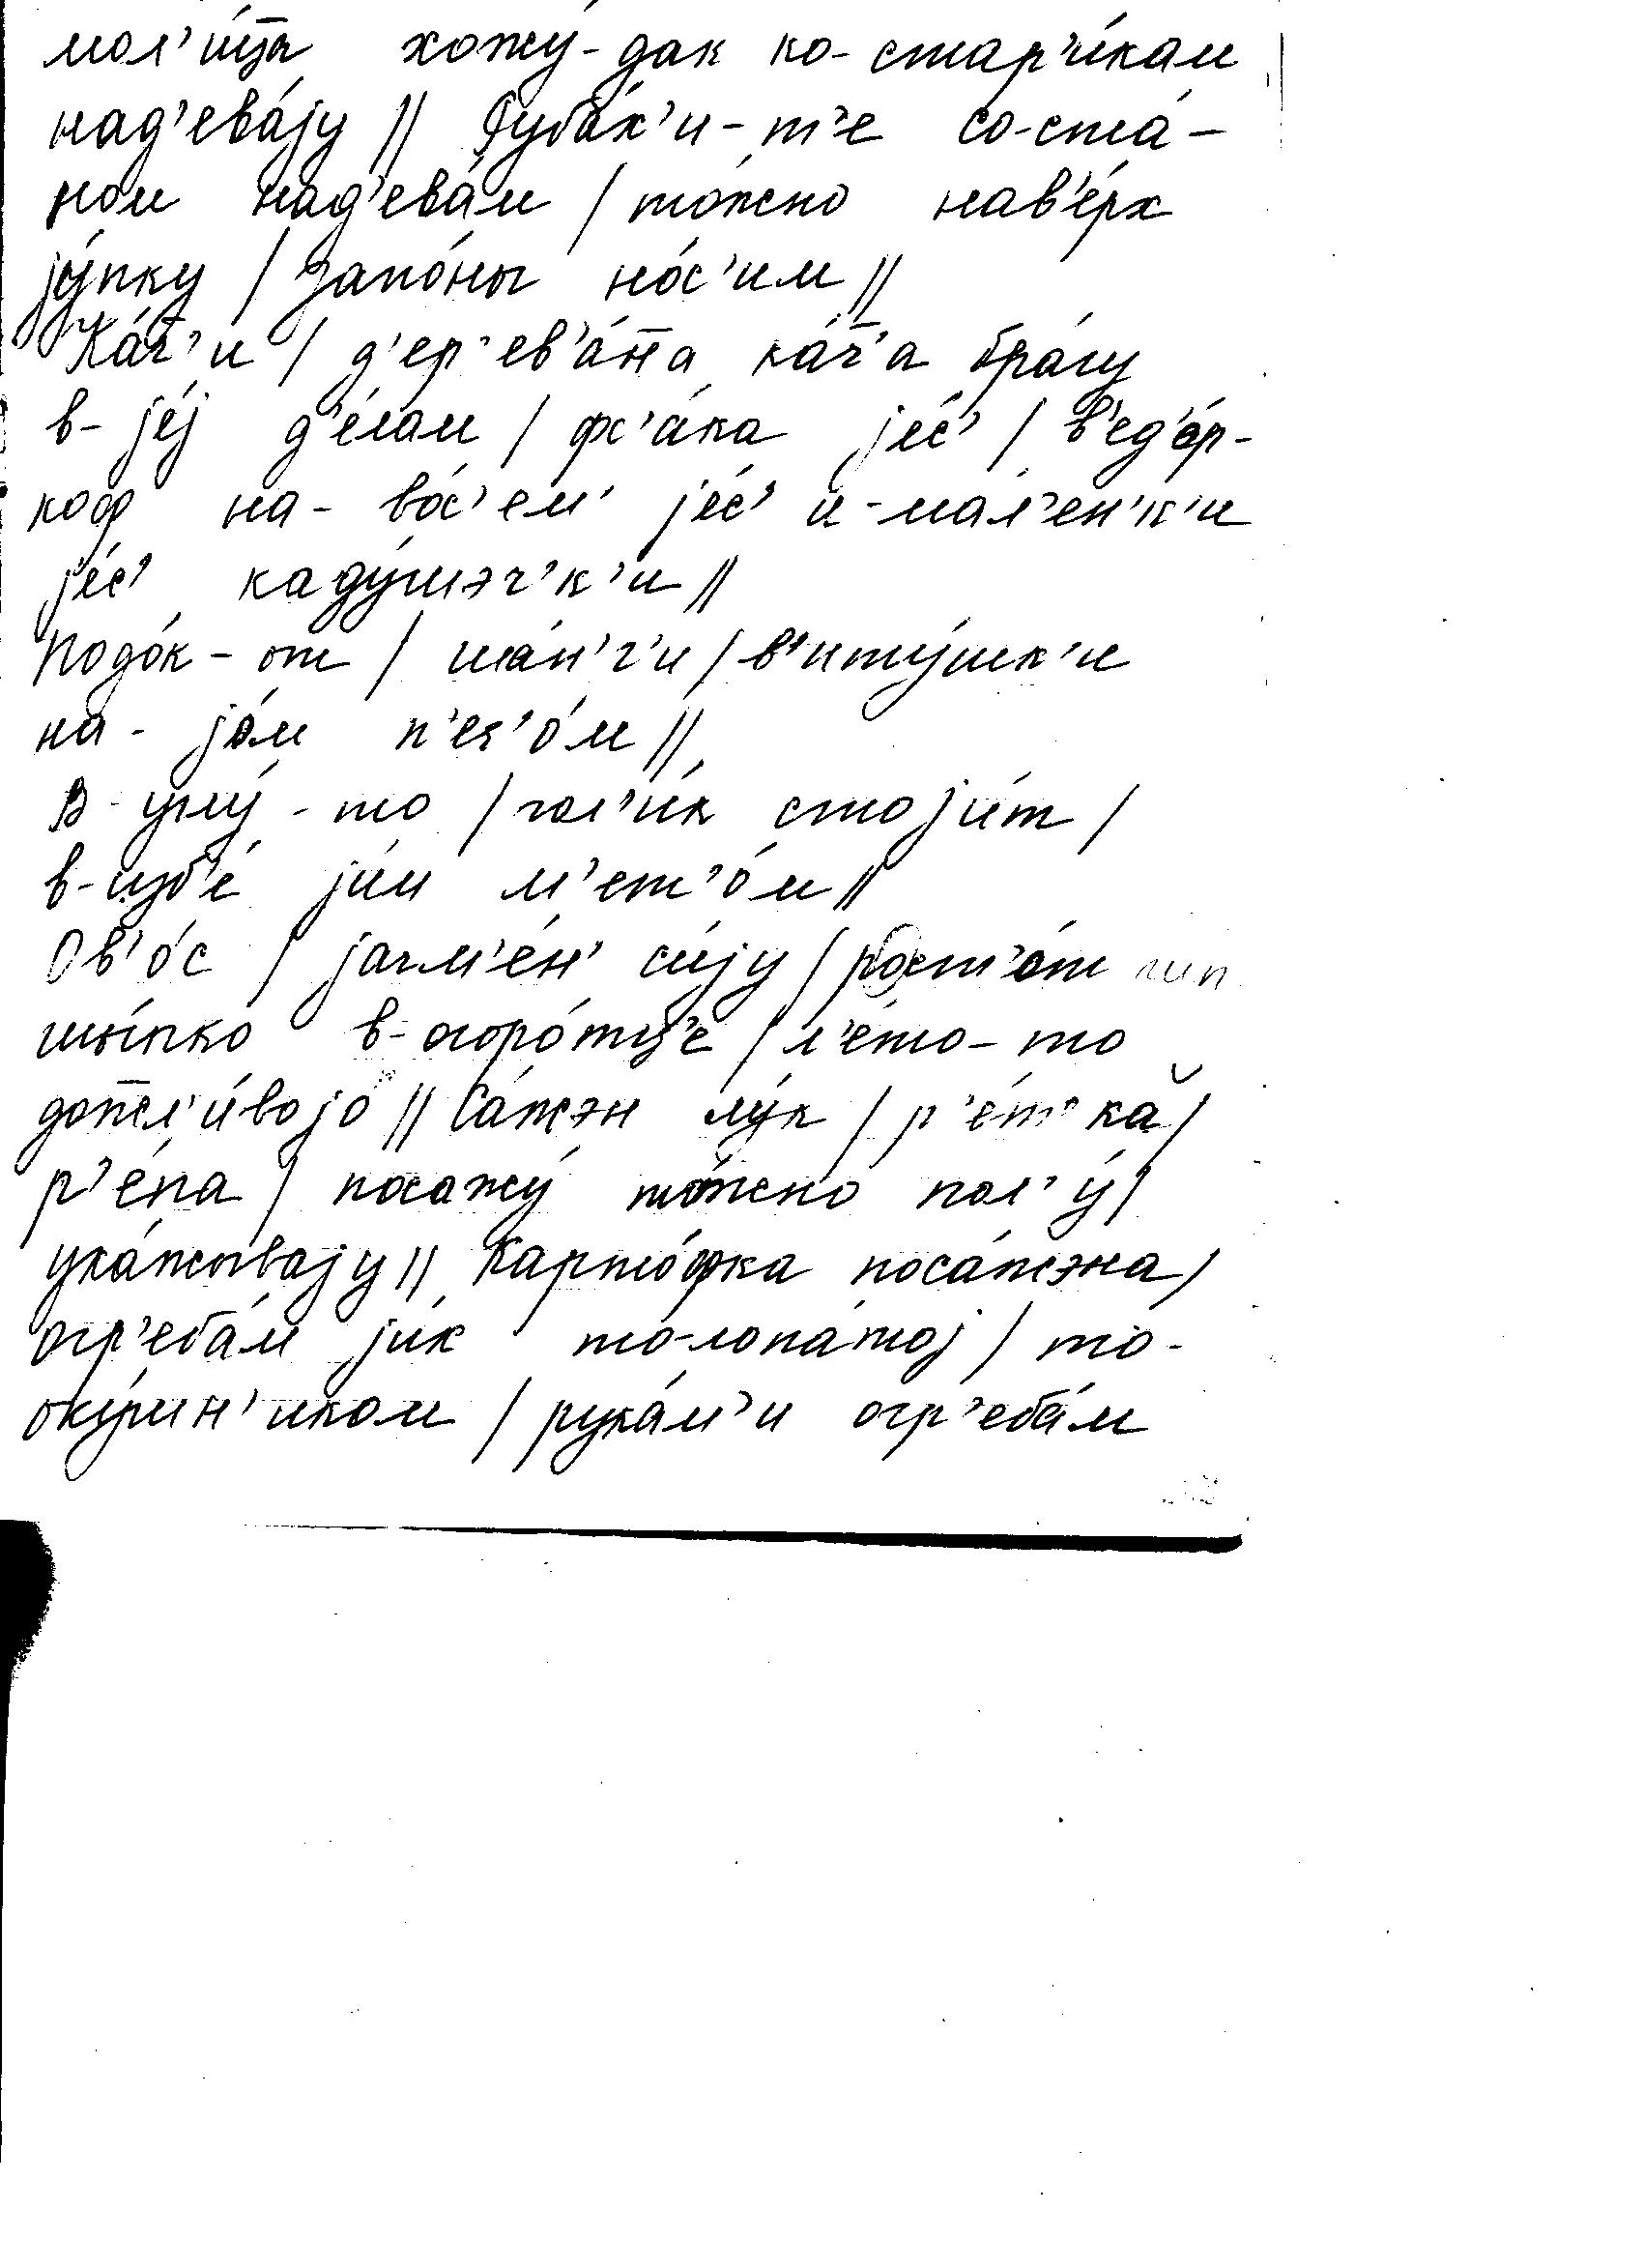 мол'и́ц̄ы хожу́-дак ко-стар'и́кам
над'ева́jу || Руба́х'и-т'е со-ста́-
ном над'ева́м / то́жно нав'е́рх
jу́пку / запо́ны но́с'им ||
Ка́ч̄'и / д'ер'ев'а́н̄а ка́ч̄'а бра́гу
в-jе́j д'е́лам / фс'а́ка jе́с' / в'ед'о́р-
коф на-во́с'ем' jе́с' и-ма́л'ен'к'и
jе́с' каду́шэч'к'и ||
Подо́к-от / ша́н'г'и / в'иту́шк'и
на-jо́м п'еч'о́м ||
В-углу́-то / гол'и́к стоjи́т /
в-изб'е́ jи́м м'ет'о́м ||
Ов'о́с / jачм'е́н' си́jу / раст'о́т
шы́пко в-огоро́тц'е / л'е́то-то
дожл'и́во jо́ || Са́жэн лу́к / р'е́т'ка /
р'е́па / посажу́ то́жно пол'у́ /
уха́жываjу || Карто́фка поса́жэна /
огр'еба́м jи́х то-лопа́тоj / то-
оку́чн'иком / рука́м'и огр'еба́м